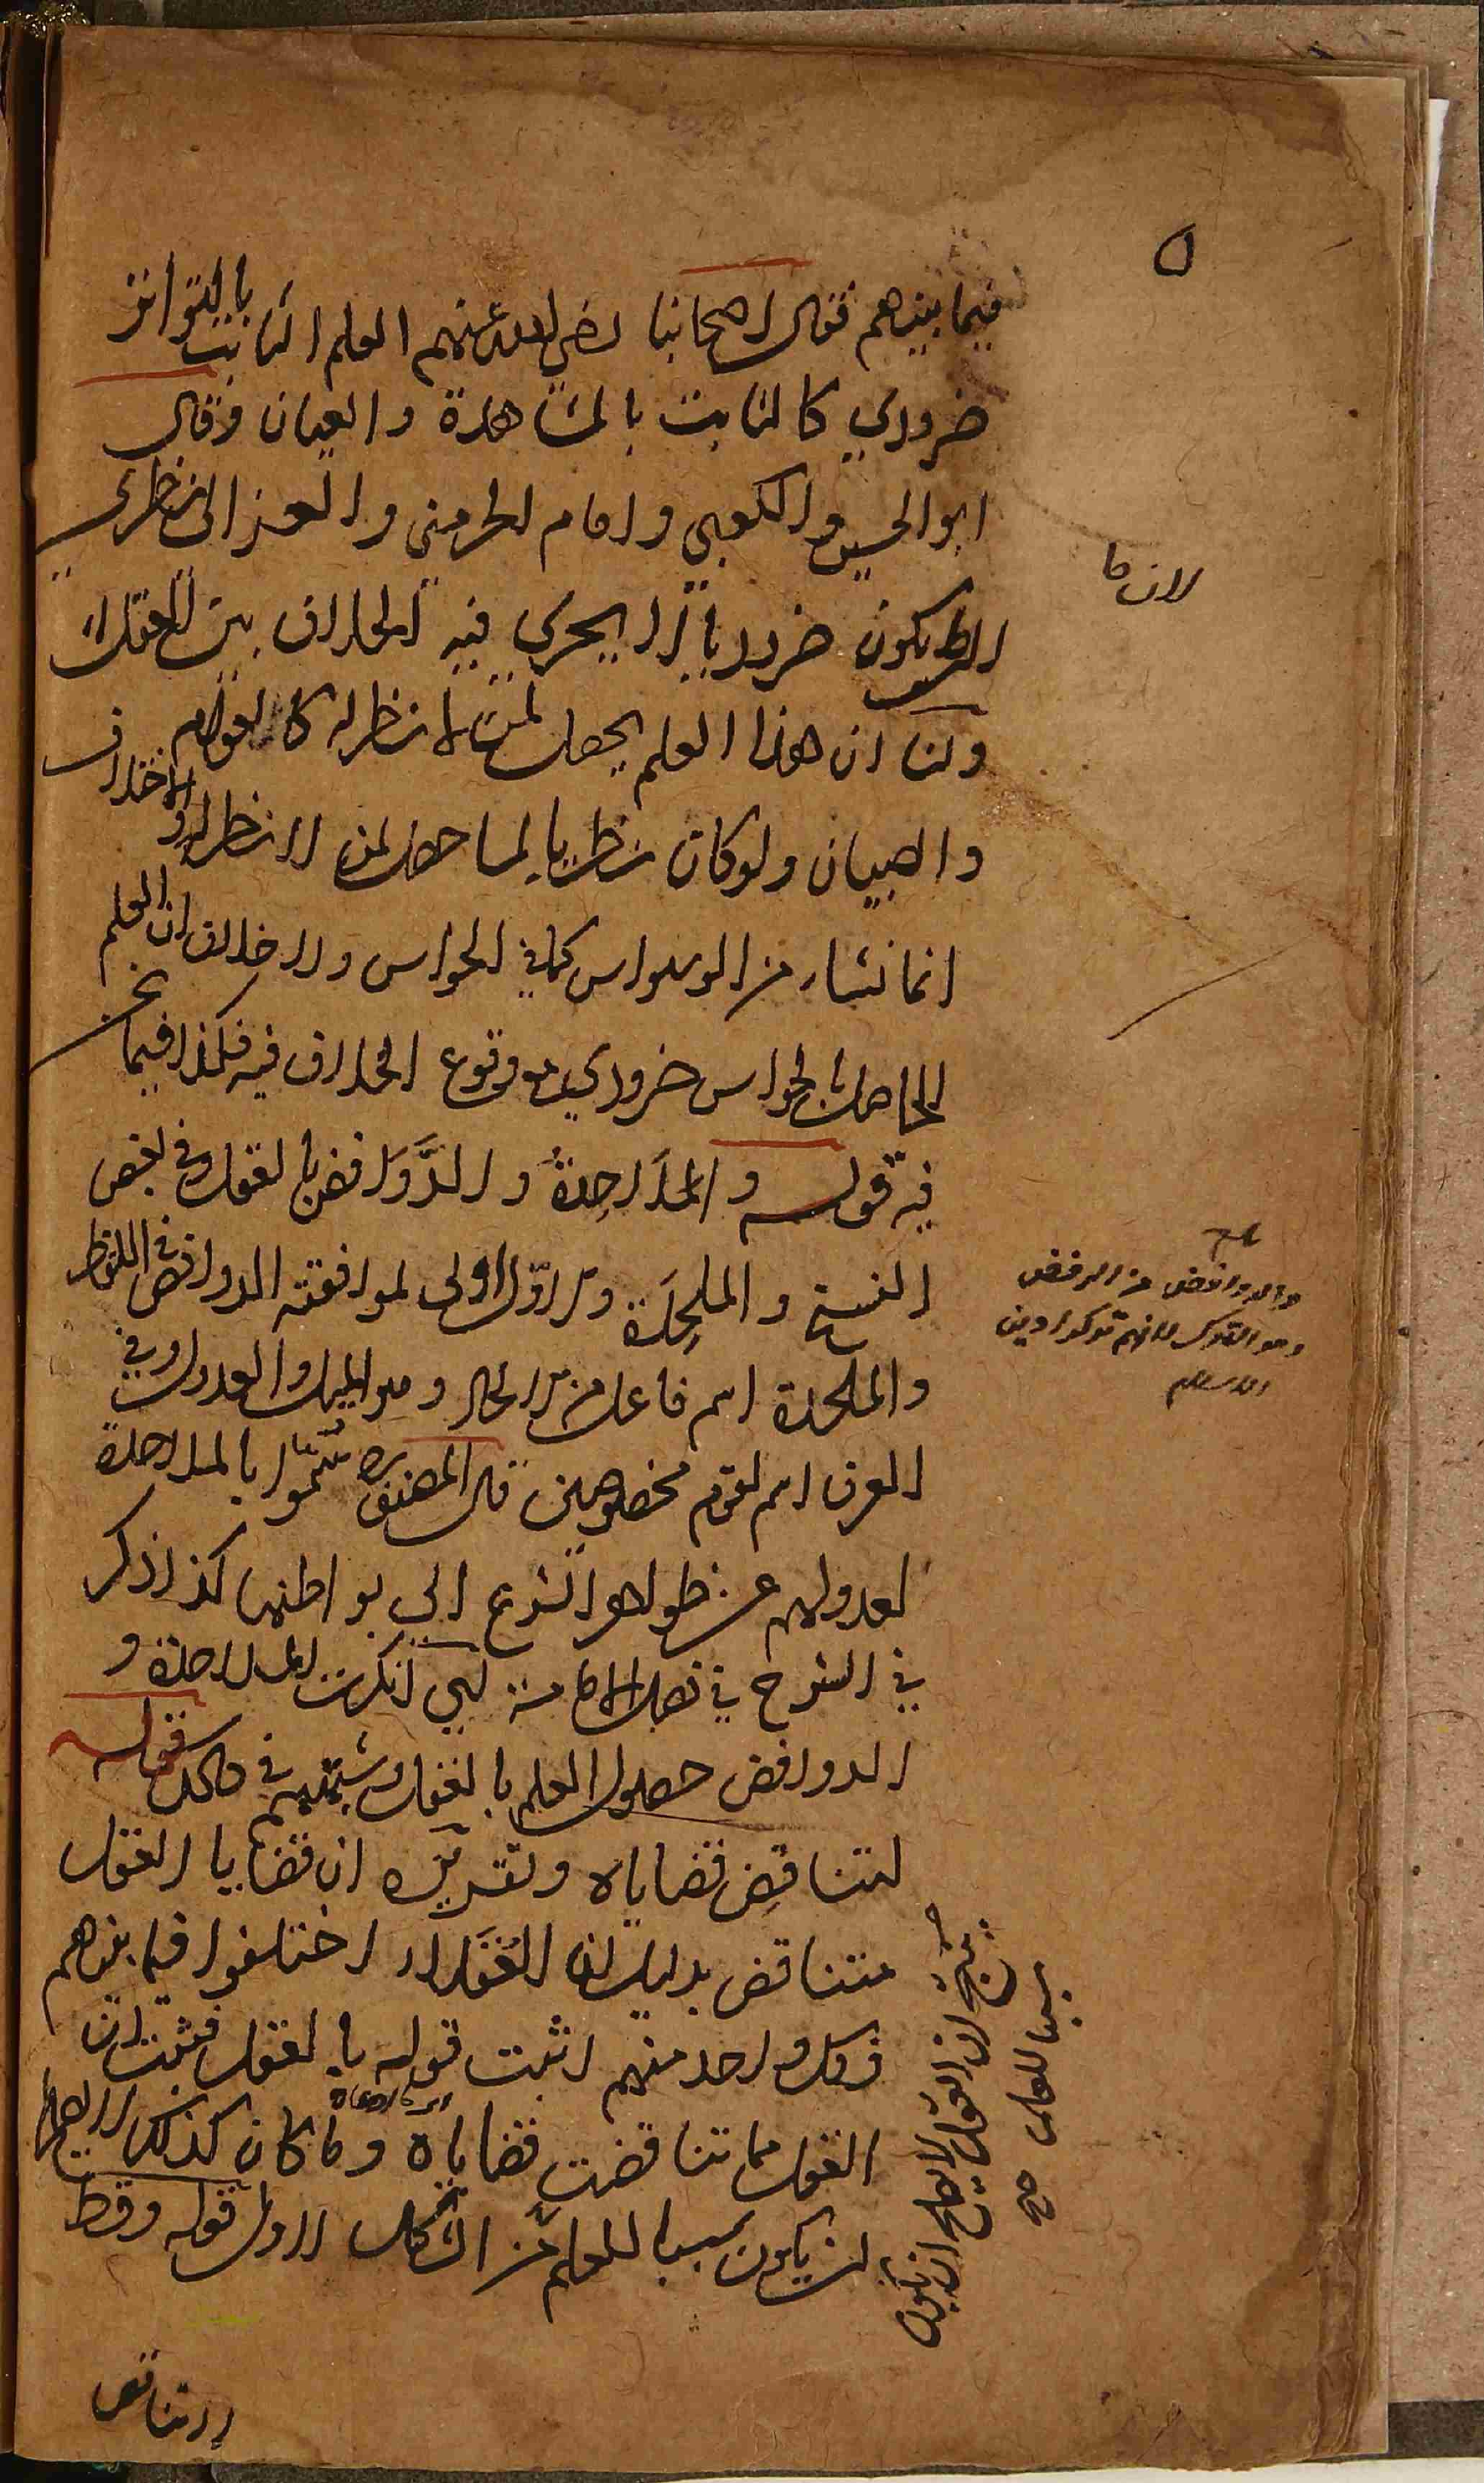 ٥
فيما بينهم فقال اصحابنا رضي الله عنهم العلم الثابت بالتواتر
ضروري كالثابت بالمشاهدة والعيان وقال
ابو الحسين والكعبي وامام الحرمين والغزالي نظري
لان ما
يكون ضروريا لا يجري فيه الخلاف بين العقلاء
ولنا ان هذا العلم يحصل لمن لا نظر له كالعوام
والصبيان ولو كان نظريا لما حصل لمن لا نظر له والاختلاف
انما نشاء من الوسواس كما في الحواس ولا خلاف ان العلم
الحاصل بالحواس ضروري مع وقوع الخلاف فيه فكذا فيما نحن
فيه قوله والملاحدة والروافض بالعقل وفي بعض
النسخ والملحدة والاول اولى لموافقته الروافض في اللفظ
والملحدة اسم فاعل من الالحاد وهو الميل والعدول وفي
العرف اسم لقوم مخصوصين قال المصنف ره سموا بالملاحدة
لعدولهم عن ظواهر الشرع الى بواطنها كذا ذكر
في الشرح في فصل الامامة اي انكرت الملاحدة و
الروافض حصول العلم بالعقل وشبهتهم في ذلك قوله
لتناقض قضاياه وتقريره ان قضايا العقل
متناقض بدليل ان العقلاء اختلفوا فيما بينهم
وكل واحد منهم اثبت قوله بالعقل فثبت ان
العقل مما تناقضت قضاياه وما كان كذلك لا يصلح
لان يكون سببا للعلم من الشكل الاول قوله وقط
لا تناقض
والروافض من الرفض
وهو الترك لانهم تركوا دين
الاسلام
ينتج ان العقل لا يصلح ان يكون
سببا للعلم صح